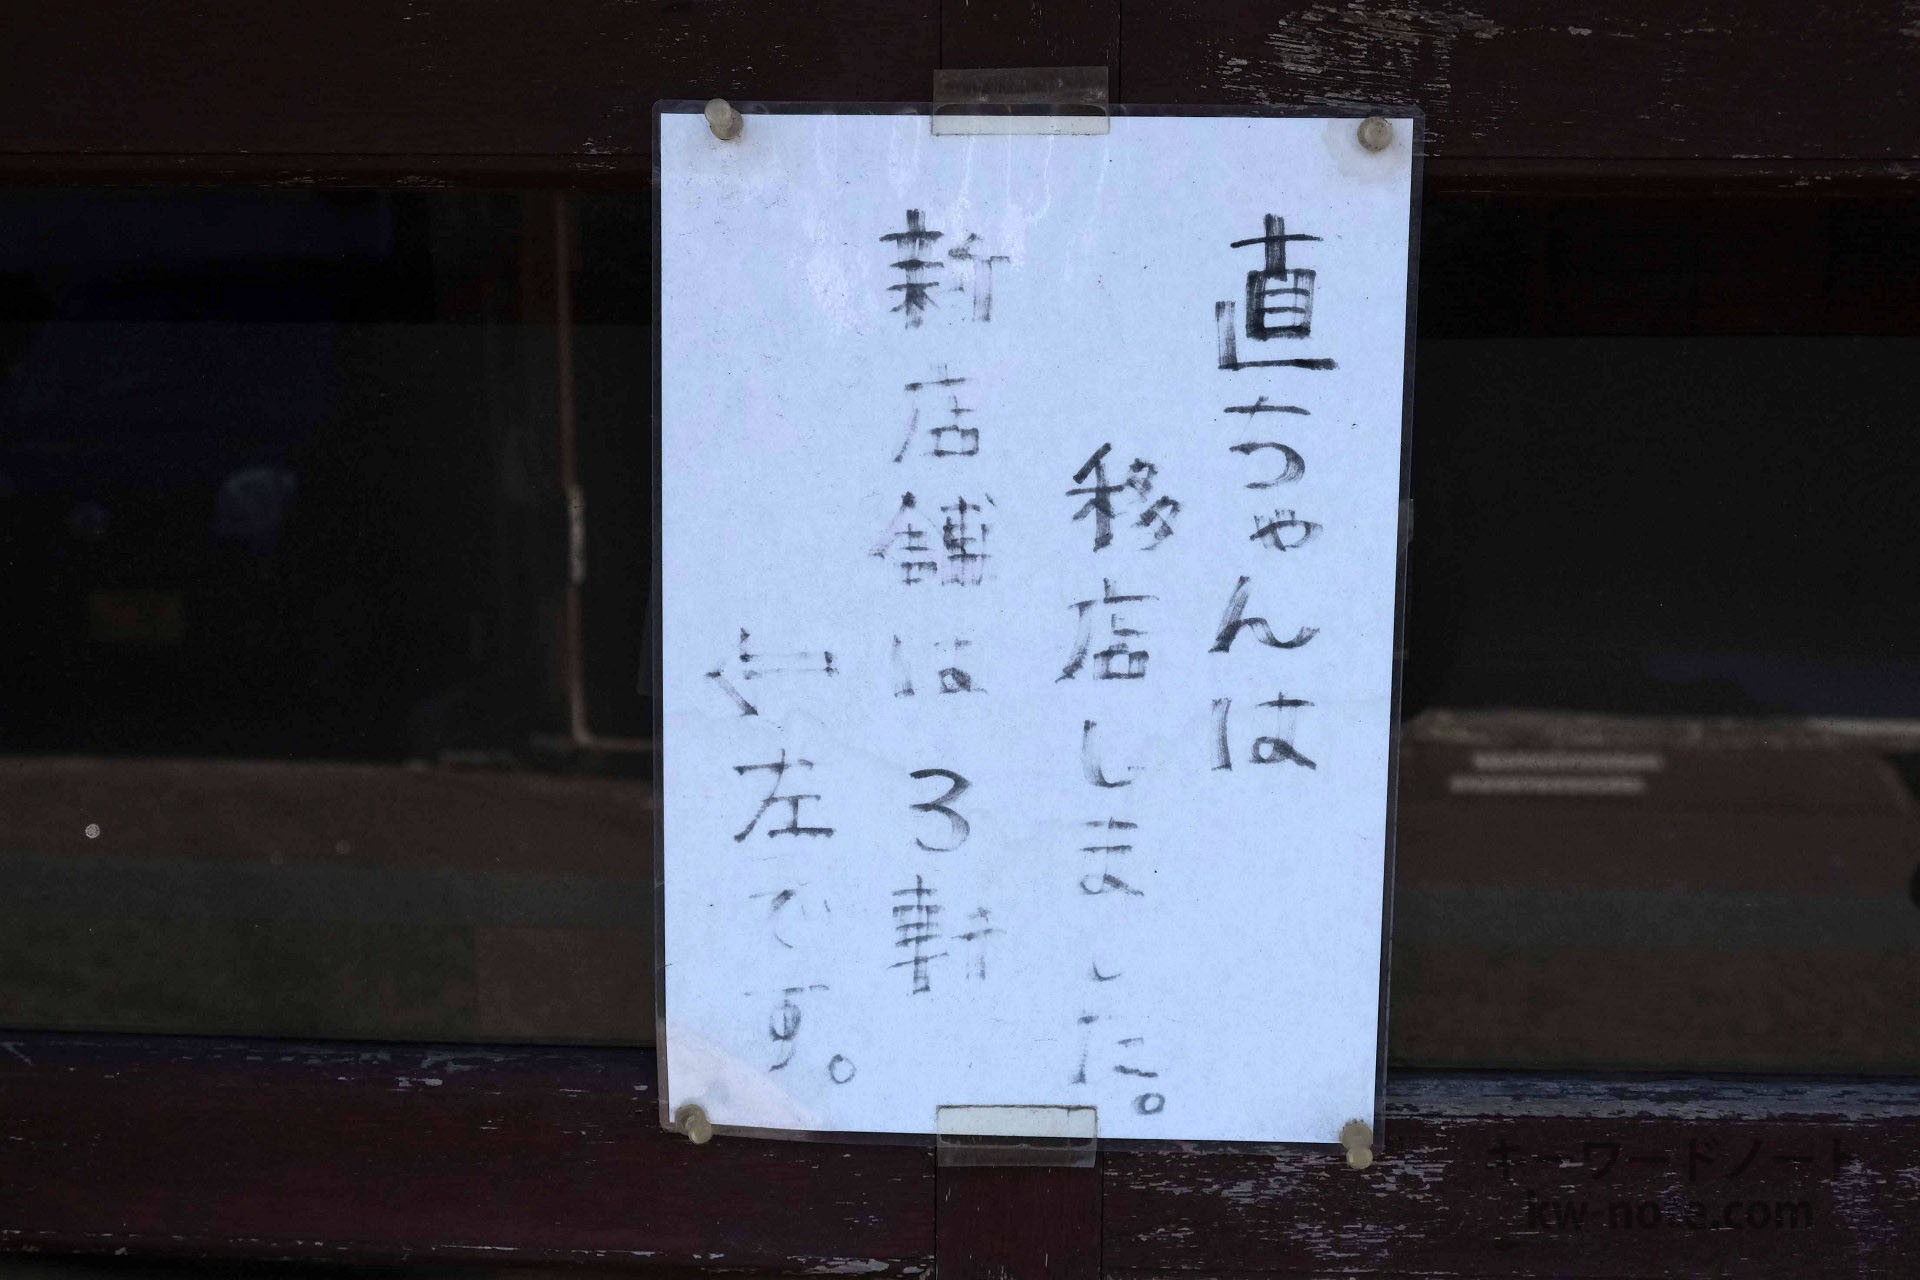 直ちゃんは
移店しました。
新店舗は3軒
⇦左です。
キーワードノート
kw-note.com